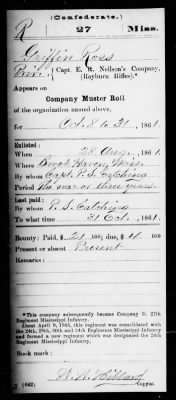 (Confederate.)
R 27 Miss.
Griffin Ross
Priv., Capt. E. R. Neilson's Company,
(Rayburn Rifles).*
Appears on
Company Muster Roll
of the organization named above,
for Oct 8 to 31, 1861.
Enlisted:
When 28 Aug, 1861.
Where Brook Haven, Miss.
By whom Capt. P.S. Catching
Period The war or three years
Last paid:
By whom P.S. Catching
To what time 31 Oct, 1861.
Bounty: Paid $ 100; due $ 100
Present or absent Present
Remarks:
*This company subsequently became Company 9, 27th
Regiment Mississippi Infantry.
About April 9, 1865, this regiment was consolidated with
the 24th, 29th, 30th and 34th Regiments Mississippi Infantry
and formed a new regiment which was designated the 24th
Regiment Mississippi Infantry.
Book mark:
(642) Copyist.